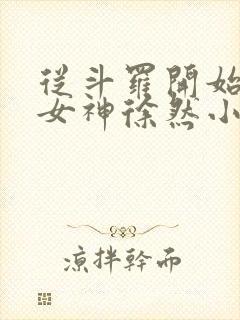 從斗羅開始
女神徐然小
涼拌幹而